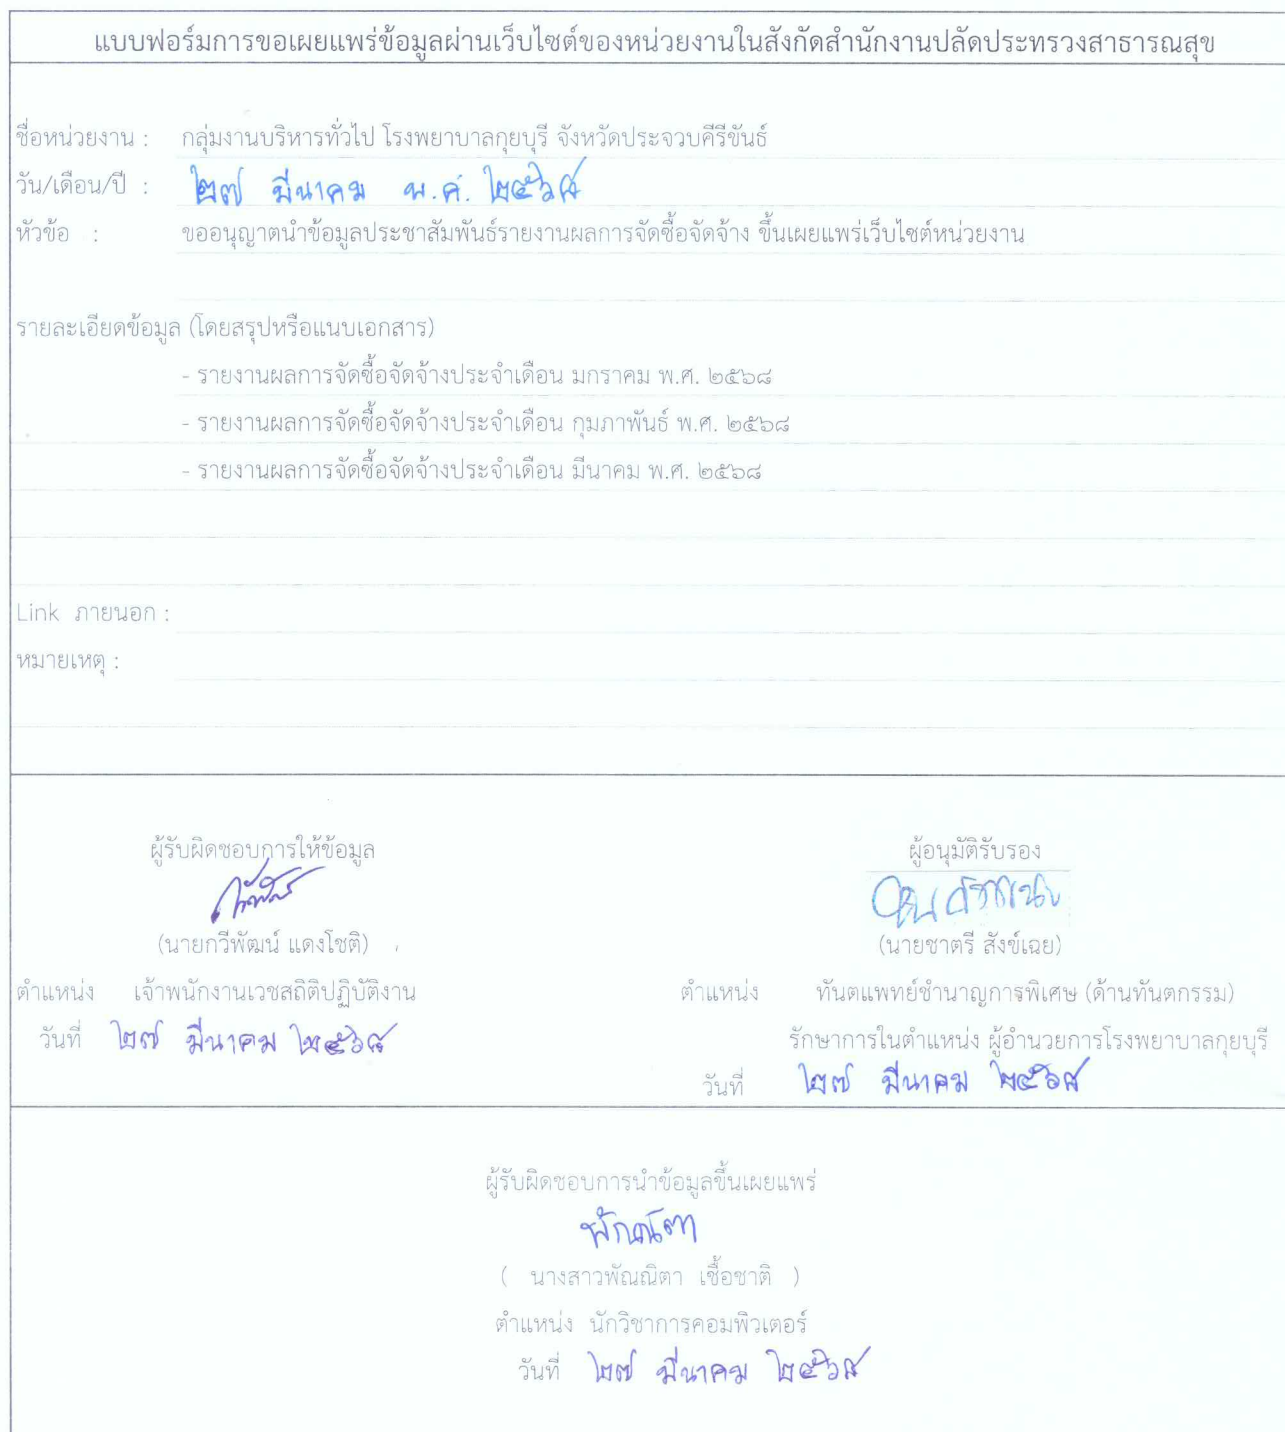 แบบฟอร์มการขอเผยแพร่ข้อมูลผ่านเว็บไซต์ของหน่วยงานในสังกัดสำนักงานปลัดประทรวงสาธารณสุข
ชื่อหน่วยงาน : กลุ่มงานบริหารทั่วไป โรงพยาบาลกุยบุรี จังหวัดประจวบคีรีขันธ์
วัน/เดือน/ปี : ๒๗ มีนาคม พ.ศ. ๒๕๖๘
หัวข้อ : ขออนุญาตนำข้อมูลประชาสัมพันธ์รายงานผลการจัดซื้อจัดจ้าง ขึ้นเผยแพร่เว็บไซต์หน่วยงาน
รายละเอียดข้อมูล (โดยสรุปหรือแนบเอกสาร)
- รายงานผลการจัดซื้อจัดจ้างประจำเดือน มกราคม พ.ศ. ๒๕๖๘
- รายงานผลการจัดซื้อจัดจ้างประจำเดือน กุมภาพันธ์ พ.ศ. ๒๕๖๘
- รายงานผลการจัดซื้อจัดจ้างประจำเดือน มีนาคม พ.ศ. ๒๕๖๘
Link ภายนอก :
หมายเหตุ :
ผู้รับผิดชอบการให้ข้อมูล
(นายกวีพัฒน์ แดงโชติ)
ตำแหน่ง เจ้าพนักงานเวชสถิติปฏิบัติงาน
วันที่ ๒๗ มีนาคม ๒๕๖๘
ผู้อนุมัติรับรอง
(นายชาตรี สังข์เฉย)
ตำแหน่ง ทันตแพทย์ชำนาญการพิเศษ (ด้านทันตกรรม)
รักษาการในตำแหน่ง ผู้อำนวยการโรงพยาบาลกุยบุรี
วันที่ ๒๗ มีนาคม ๒๕๖๘
ผู้รับผิดชอบการนำข้อมูลขึ้นเผยแพร่
พัณณิตา
( นางสาวพัณณิตา เชื้อชาติ )
ตำแหน่ง นักวิชาการคอมพิวเตอร์
วันที่ ๒๗ มีนาคม ๒๕๖๘